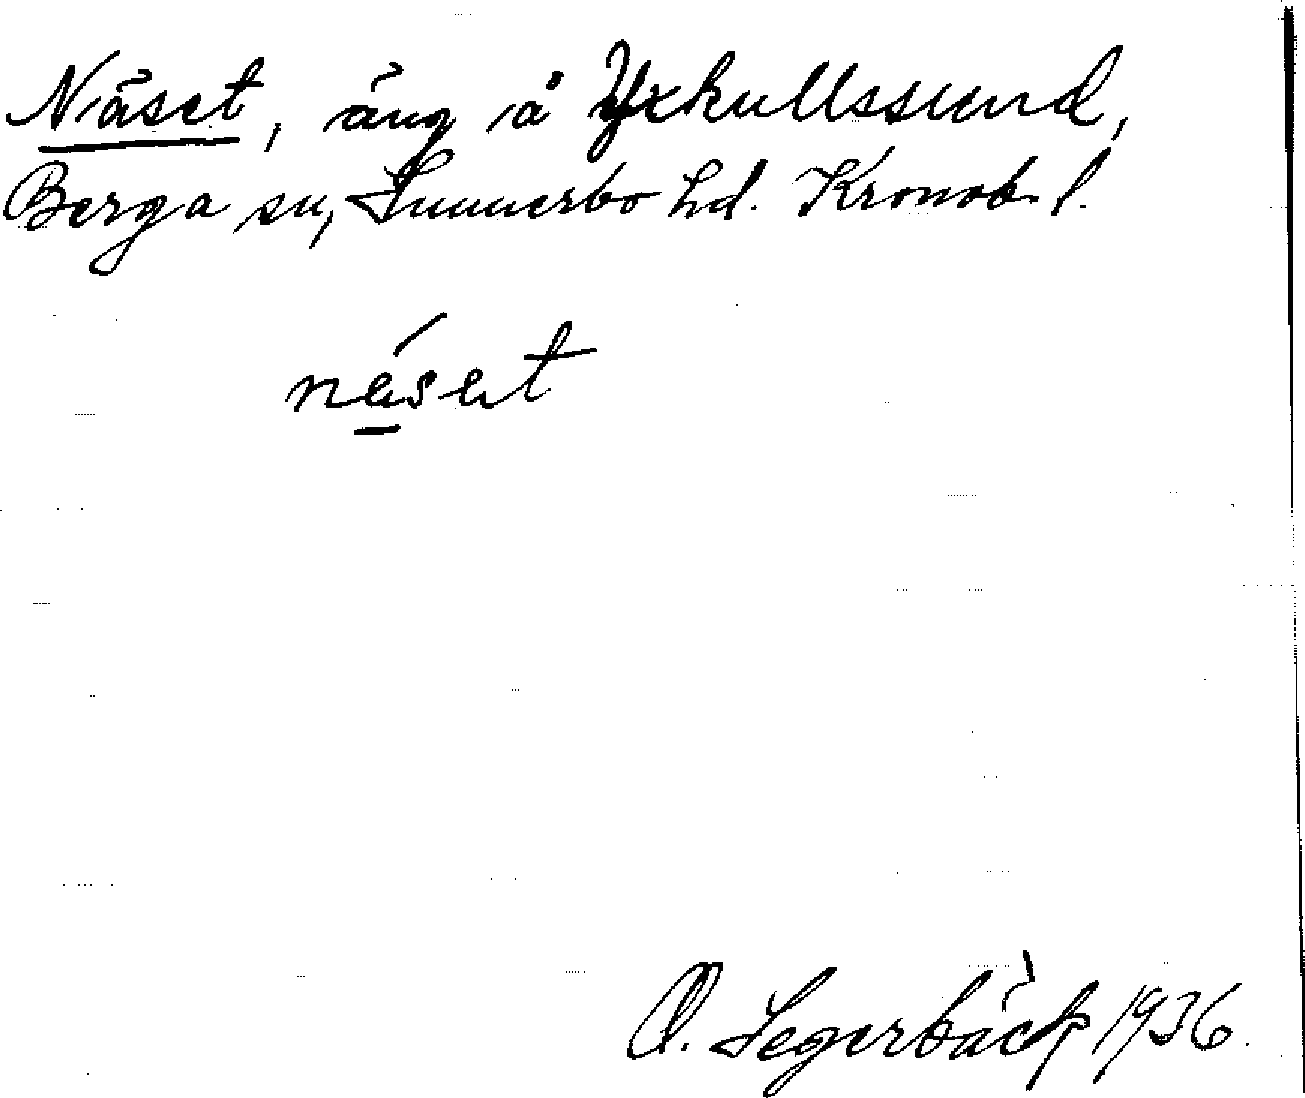 Näset, äng å Yxkullssund,
Berga sn, Sunnerbo hd. Kronob. l.
näsat
O. Segerbäck 1936.